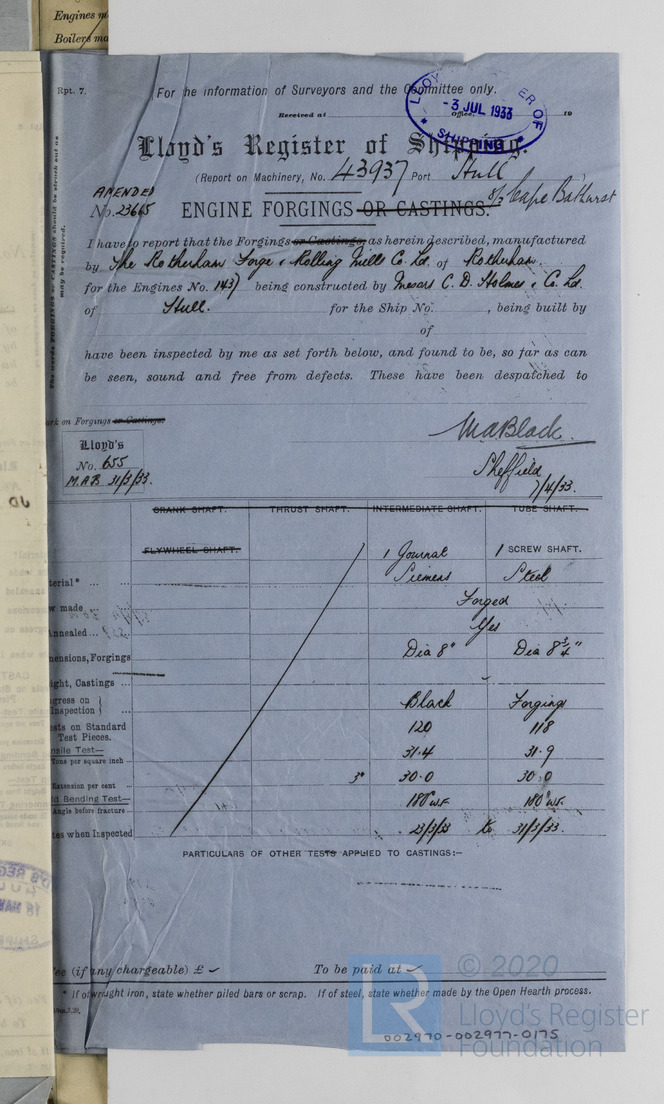 Engines
Boilers
Rpt. 7.
For the information of Surveyors and the Committee only.
Received at Office, 19
LLOYD'S REGISTER OF SHIPPING
-3 JUL 1933
Lloyd's Register of Shipping.
(Report on Machinery, No. 43937 Port Hull
AMENDED
S/S Cape Bathurst
No. 23665
ENGINE FORGINGS OR CASTINGS.
I have to report that the Forgings or Castings, as herein described, manufactured
by The Rotherham Forge & Rolling Mills Co. Ld. of Rotherham.
for the Engines No. 1437 being constructed by Messrs C. D. Holmes & Co. Ld.
of Hull. for the Ship No. , being built by
of
have been inspected by me as set forth below, and found to be, so far as can
be seen, sound and free from defects. These have been despatched to
The words FORGINGS or CASTINGS should be struck out as
may be required.
on Forgings or Castings.
Lloyd's
No. 655
M.A.B 31/3/33.
M A Black
Sheffield
7/4/33.
CRANK SHAFT. THRUST SHAFT. INTERMEDIATE SHAFT. TUBE SHAFT.
FLYWHEEL SHAFT. 1 Journal 1 SCREW SHAFT.
Siemens Steel
made Forged
Annealed ... Yes
Forgings Dia 8" Dia 8 3/4"
Castings ...
on
Inspection Black Forging
on Standard
Test Pieces. 120 118
Test—
Tons per square inch 31.4 31.9
Extension per cent 3" 30.0 30.0
Bending Test—
Angle before fracture 180° W.F. 180° W.F.
when Inspected 23/3/33 to 31/3/33.
PARTICULARS OF OTHER TESTS APPLIED TO CASTINGS:—
(if any chargeable) £ To be paid at
* If of wrought iron, state whether piled bars or scrap. If of steel, state whether made by the Open Hearth process.
© 2020
LR
Lloyd's Register
Foundation
002970-002977-0175